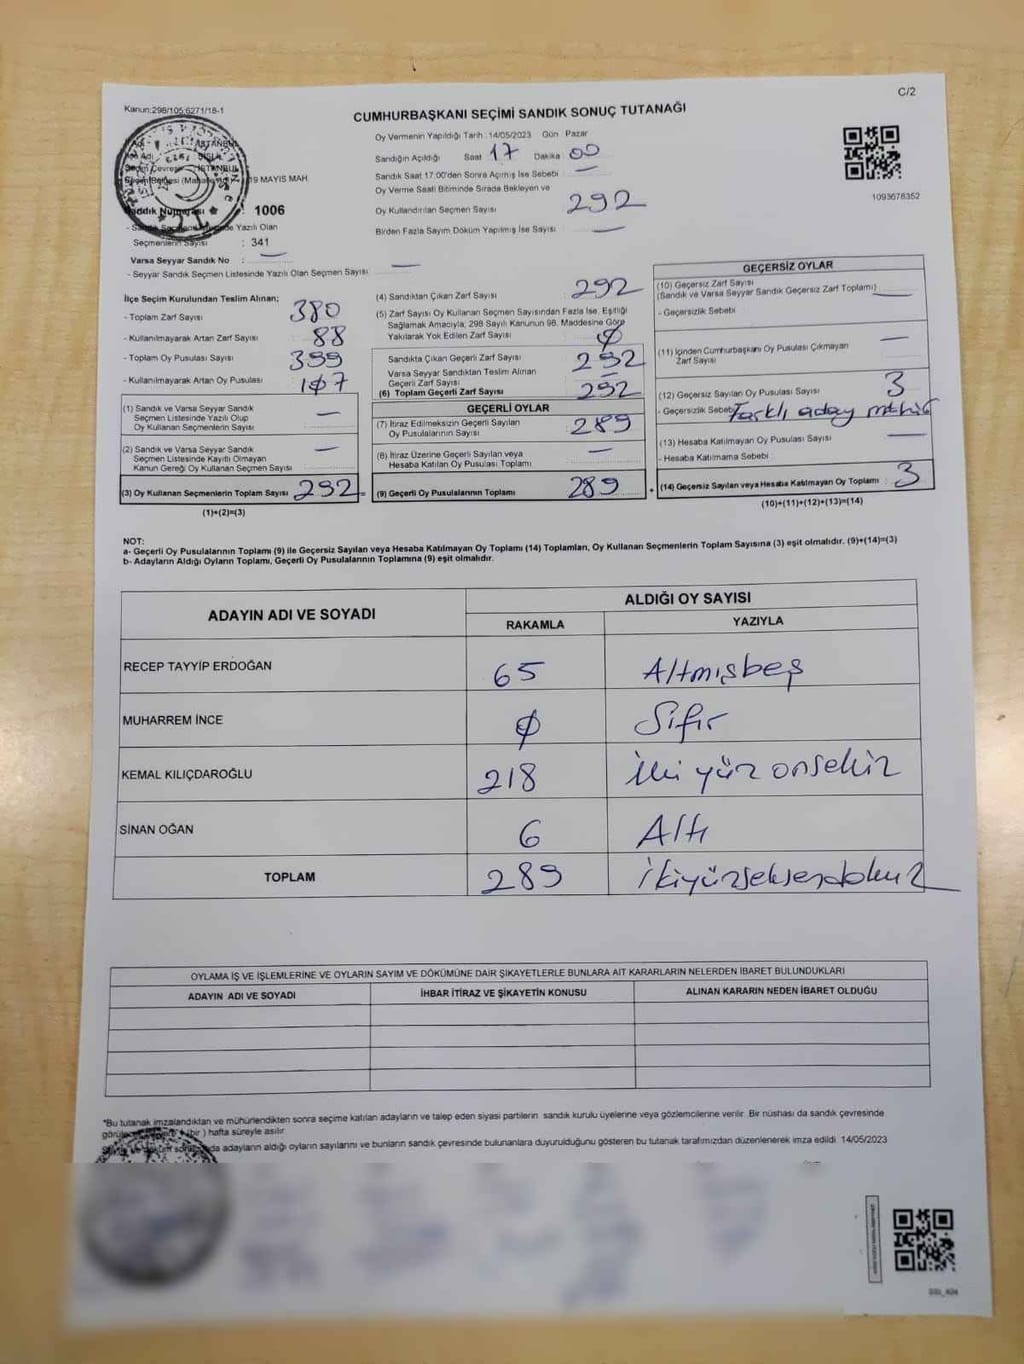 Kanun:298/105:6271/18-1
C/2
CUMHURBAŞKANI SEÇİMİ SANDIK SONUÇ TUTANAĞI
Oy Vermenin Yapıldığı Tarih :14/05/2023 Gün Pazar
Sandığın Açıldığı Saat 17 Dakika 00
Sandık Saat 17:00'den Sonra Açımış İse Sebebi —
Oy Verme Saati Bitiminde Sırada Bekleyen ve
Oy Kullandırılan Seçmen Sayısı 292
Birden Fazla Sayım Döküm Yapılmış İse Sayısı —
1093678352
İSTANBUL
ŞİŞLİ
İSTANBUL
19 MAYIS MAH.
Sandık Numarası 1006
Yazılı Olan
Seçmenlerin Sayısı : 341
Varsa Seyyar Sandık No : —
- Seyyar Sandık Seçmen Listesinde Yazılı Olan Seçmen Sayısı —
İlçe Seçim Kurulundan Teslim Alınan;
- Toplam Zarf Sayısı 380
- Kullanılmayarak Artan Zarf Sayısı 88
- Toplam Oy Pusulası Sayısı 399
- Kullanılmayarak Artan Oy Pusulası 107
(1) Sandık ve Varsa Seyyar Sandık
Seçmen Listesinde Yazılı Olup
Oy Kullanan Seçmenlerin Sayısı —
(2) Sandık ve Varsa Seyyar Sandık
Seçmen Listesinde Kayıtlı Olmayan
Kanun Gereği Oy Kullanan Seçmen Sayısı —
(3) Oy Kullanan Seçmenlerin Toplam Sayısı 292
(1)+(2)=(3)
(4) Sandıktan Çıkan Zarf Sayısı 292
(5) Zarf Sayısı Oy Kullanan Seçmen Sayısından Fazla İse, Eşitliği
Sağlamak Amacıyla; 298 Sayılı Kanunun 98. Maddesine Göre
Yakılarak Yok Edilen Zarf Sayısı 0
Sandıkta Çıkan Geçerli Zarf Sayısı 292
Varsa Seyyar Sandıktan Teslim Alınan
Geçerli Zarf Sayısı —
(6) Toplam Geçerli Zarf Sayısı 292
GEÇERLİ OYLAR
(7) İtiraz Edilmeksizin Geçerli Sayılan
Oy Pusulalarının Sayısı 289
(8) İtiraz Üzerine Geçerli Sayılan veya
Hesaba Katılan Oy Pusulası Toplamı —
(9) Geçerli Oy Pusulalarının Toplamı 289
GEÇERSİZ OYLAR
(10) Geçersiz Zarf Sayısı
(Sandık ve Varsa Seyyar Sandık Geçersiz Zarf Toplamı) —
- Geçersizlik Sebebi
(11) İçinden Cumhurbaşkanı Oy Pusulası Çıkmayan
Zarf Sayısı —
(12) Geçersiz Sayılan Oy Pusulası Sayısı 3
- Geçersizlik Sebebi Farklı aday mühür
(13) Hesaba Katılmayan Oy Pusulası Sayısı —
- Hesaba Katılmama Sebebi
(14) Geçersiz Sayılan veya Hesaba Katılmayan Oy Toplamı : 3
(10)+(11)+(12)+(13)=(14)
NOT:
a- Geçerli Oy Pusulalarının Toplamı (9) ile Geçersiz Sayılan veya Hesaba Katılmayan Oy Toplamı (14) Toplamları, Oy Kullanan Seçmenlerin Toplam Sayısına (3) eşit olmalıdır. (9)+(14)=(3)
b- Adayların Aldığı Oyların Toplamı, Geçerli Oy Pusulalarının Toplamına (9) eşit olmalıdır.
ADAYIN ADI VE SOYADI
ALDIĞI OY SAYISI
RAKAMLA YAZIYLA
RECEP TAYYİP ERDOĞAN 65 Altmışbeş
MUHARREM İNCE 0 Sıfır
KEMAL KILIÇDAROĞLU 218 İki yüz onsekiz
SİNAN OĞAN 6 Altı
TOPLAM 289 İkiyüzseksendokuz
OYLAMA İŞ VE İŞLEMLERİNE VE OYLARIN SAYIM VE DÖKÜMÜNE DAİR ŞİKAYETLERLE BUNLARA AİT KARARLARIN NELERDEN İBARET BULUNDUKLARI
ADAYIN ADI VE SOYADI İHBAR İTİRAZ VE ŞİKAYETİN KONUSU ALINAN KARARIN NEDEN İBARET OLDUĞU
*Bu tutanak imzalandıktan ve mühürlendikten sonra seçime katılan adayların ve talep eden siyasi partilerin sandık kurulu üyelerine veya gözlemcilerine verilir. Bir nüshası da sandık çevresinde
bir ) hafta süreyle asılır.
adayların aldığı oyların sayılarını ve bunların sandık çevresinde bulunanlara duyurulduğunu gösteren bu tutanak tarafımızdan düzenlenerek imza edildi. 14/05/2023